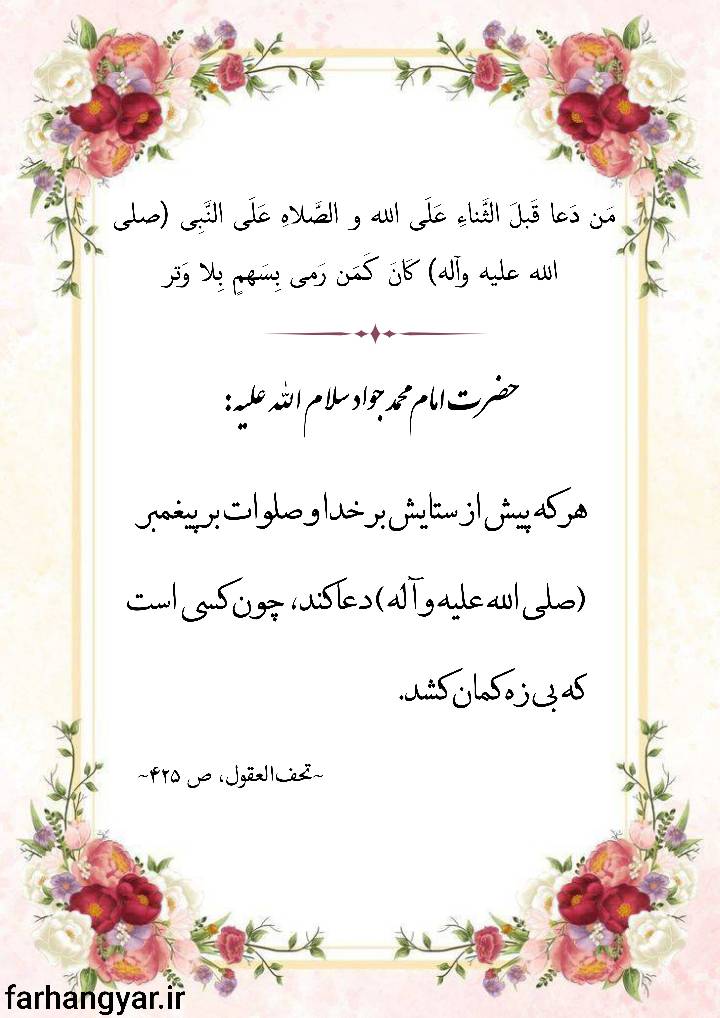 مَن دَعا قَبلَ الثَّناءِ عَلَی الله و الصَّلاهِ عَلَی النَّبِی (صلی
الله علیه وآله) کَانَ کَمَن رَمی بِسَهمٍ بِلا وَتر
حضرت امام محمد جواد سلام الله علیه:
هر که پیش از ستایش بر خدا و صلوات بر پیغمبر
(صلی الله علیه و آله) دعا کند، چون کسی است
که بی زه کمان کشد.
~تحف‌العقول، ص ۴۲۵~
farhangyar.ir